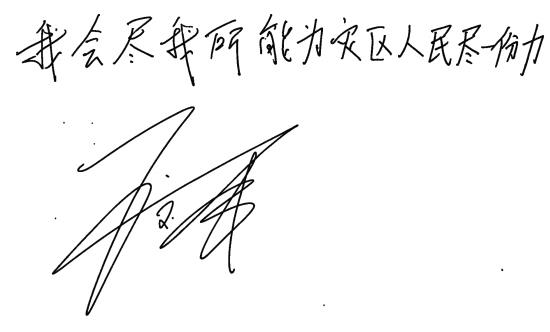 我会尽我所能为灾区人民尽一份力